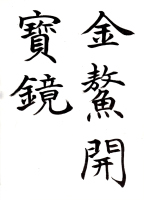 金鰲開
寶鏡